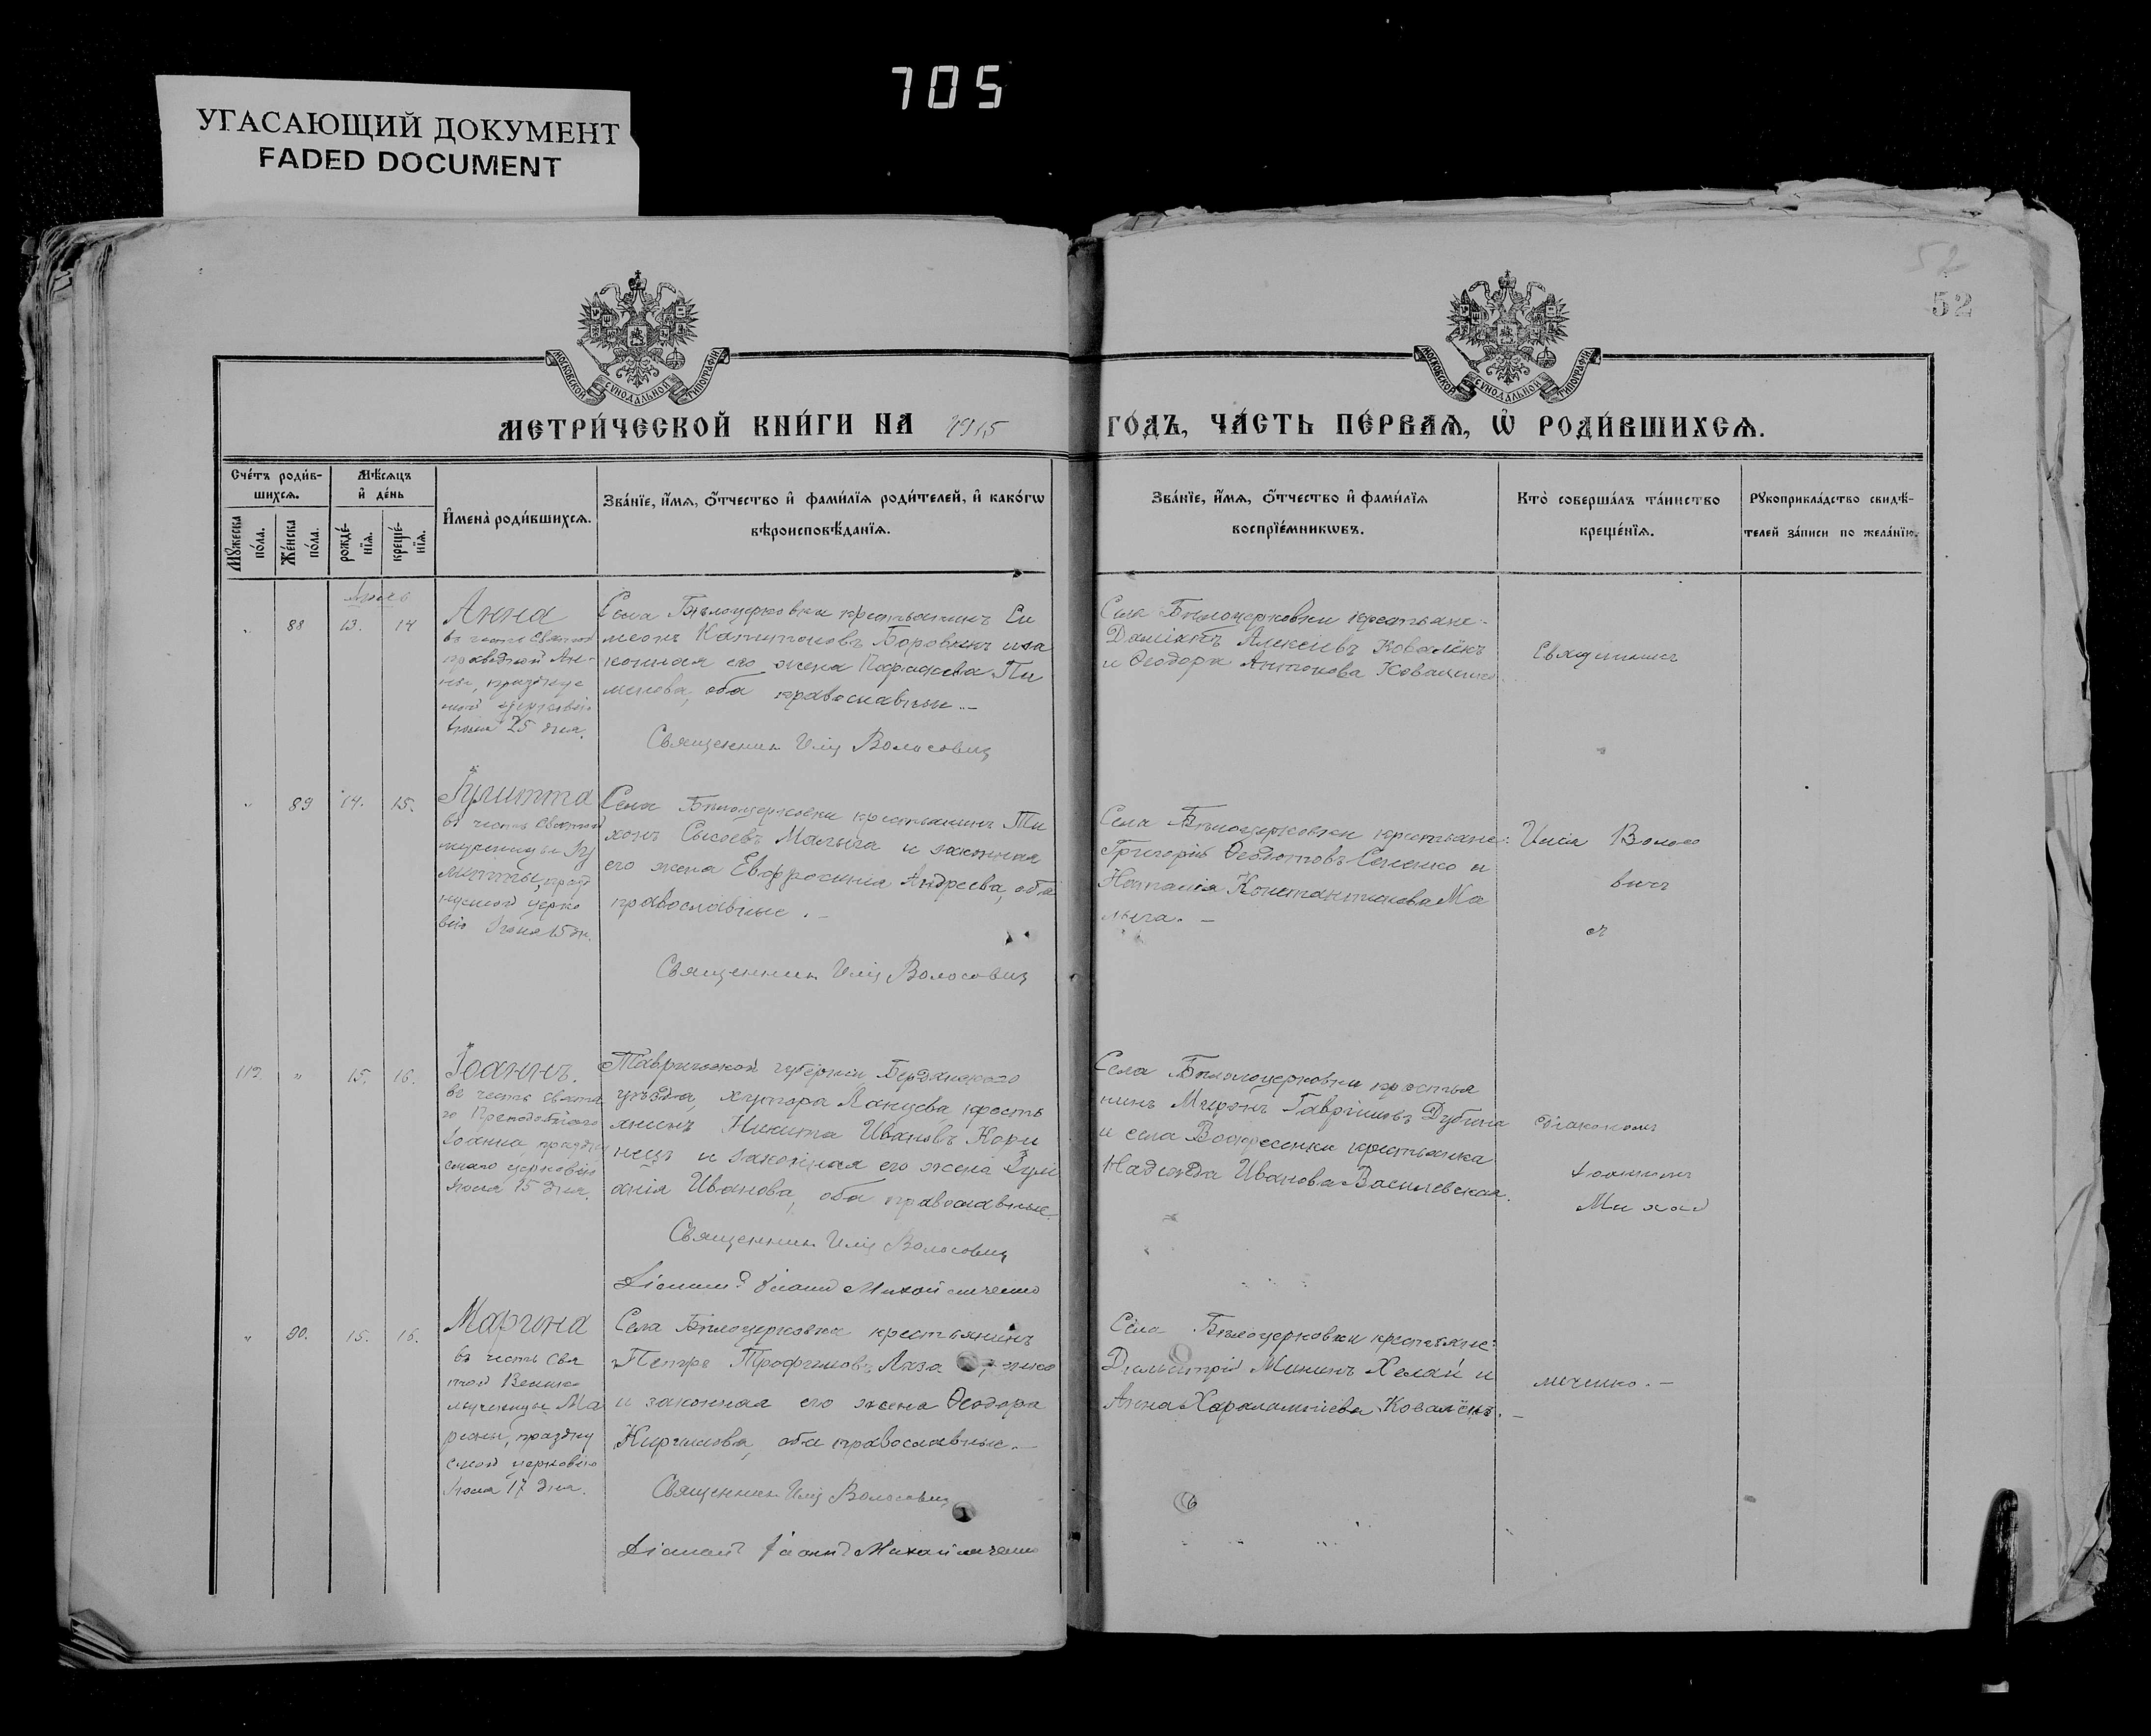 705
УГАСАЮЩИЙ ДОКУМЕНТ
FADED DOCUMENT
52
52
МОСКОВСКОЙ СѴНОДАЛЬНОЙ ТИПОГРАФІИ
МОСКОВСКОЙ СѴНОДАЛЬНОЙ ТИПОГРАФІИ
МЕТРИ́ЧЕСКОЙ КНИ́ГИ НА 1915 ГО́ДЪ, ЧА́СТЬ ПЕ́РВАѦ, Ѡ҆ РОДИ́ВШИХСѦ.
Сче́тъ роди́в-
шихсѧ.
Мꙋжеска по́ла.
Же́нска по́ла.
Мѣ́сѧцъ
и҆ де́нь
рожде́-
нїѧ.
креще́-
нїѧ.
И҆мена̀ роди́вшихсѧ.
Зва́нїе, и҆́мѧ, ѻ҆́тчество и҆ фами́лїѧ роди́телей, и҆ како́гѡ
вѣроисповѣ́данїѧ.
Зва́нїе, и҆́мѧ, ѻ҆́тчество и҆ фами́лїѧ
воспрїе́мникѡвъ.
Кто̀ соверша́лъ та́инство
креще́нїѧ.
Рꙋкоприкла́дство свидѣ́-
телей за́писи по жела́нїю.
88 13. 14
Анна
въ честь святой
праведной Ан-
ны, празднуе
мой церковію
Іюля 25 дня.
Села Бѣлоцерковки крестьянинъ Си
меонъ Капитоновъ Боровикъ и за
конная его жена Параскева Пи
менова, оба православные.-
Священникъ Илія Волосовичъ
Села Бѣлоцерковки крестьяне:
Алексіевъ Ковалёкъ
и Ѳеодора Антонова
Священникъ
" 89 14. 15.
Іулитта
въ честь святой
мученицы Іу
литты, празд
нуемой церко
вію 15 дн.
Села Бѣлоцерковки крестьянинъ Ти
хонъ Сысоевъ Малыга и законная
его жена Евфросинія Андреева, оба
православные.-
Священникъ Илія Волосовичъ
Села Бѣлоцерковки крестьяне:
Григорій Ѳеодотовъ и
Наталія Константинова Ма
лыга.-
Илія Волосо
вичъ
112 " 15. 16.
Іоаннъ.
въ честь свята
го Преподобнаго
Іоанна, праздну
емаго церковію
Іюля 15 дня.
Таврической губерніи Бердянскаго
уѣзда, хутора крестья
янинъ Никита Ивановъ Кори
нецъ и законная его жена Іулі
анія Иванова, оба православные.
Священникъ Илія Волосовичъ
Діаконъ Іоаннъ Михайличенко
Села Бѣлоцерковки крестья
нинъ Миронъ Гавріиловъ Дубина
и села Воскресенки крестьянка
Надежда Иванова Василевская.
Діакономъ
Іоанномъ
Михай
" 90. 15. 16.
Марина
въ честь свя
той Велико
мученицы Ма
рины, праздну
емой церковію
Іюля 17 дня.
Села Бѣлоцерковки крестьянинъ
Петръ Трофимовъ
и законная его жена Ѳеодора
Кириллова, оба православные.-
Священникъ Илія Волосовичъ
Діаконъ Іоаннъ Михайличенко
Села Бѣлоцерковки крестьяне:
Димитрій Мининъ Хелай и
Анна Харалампіева Ковалёкъ.-
личенко.-